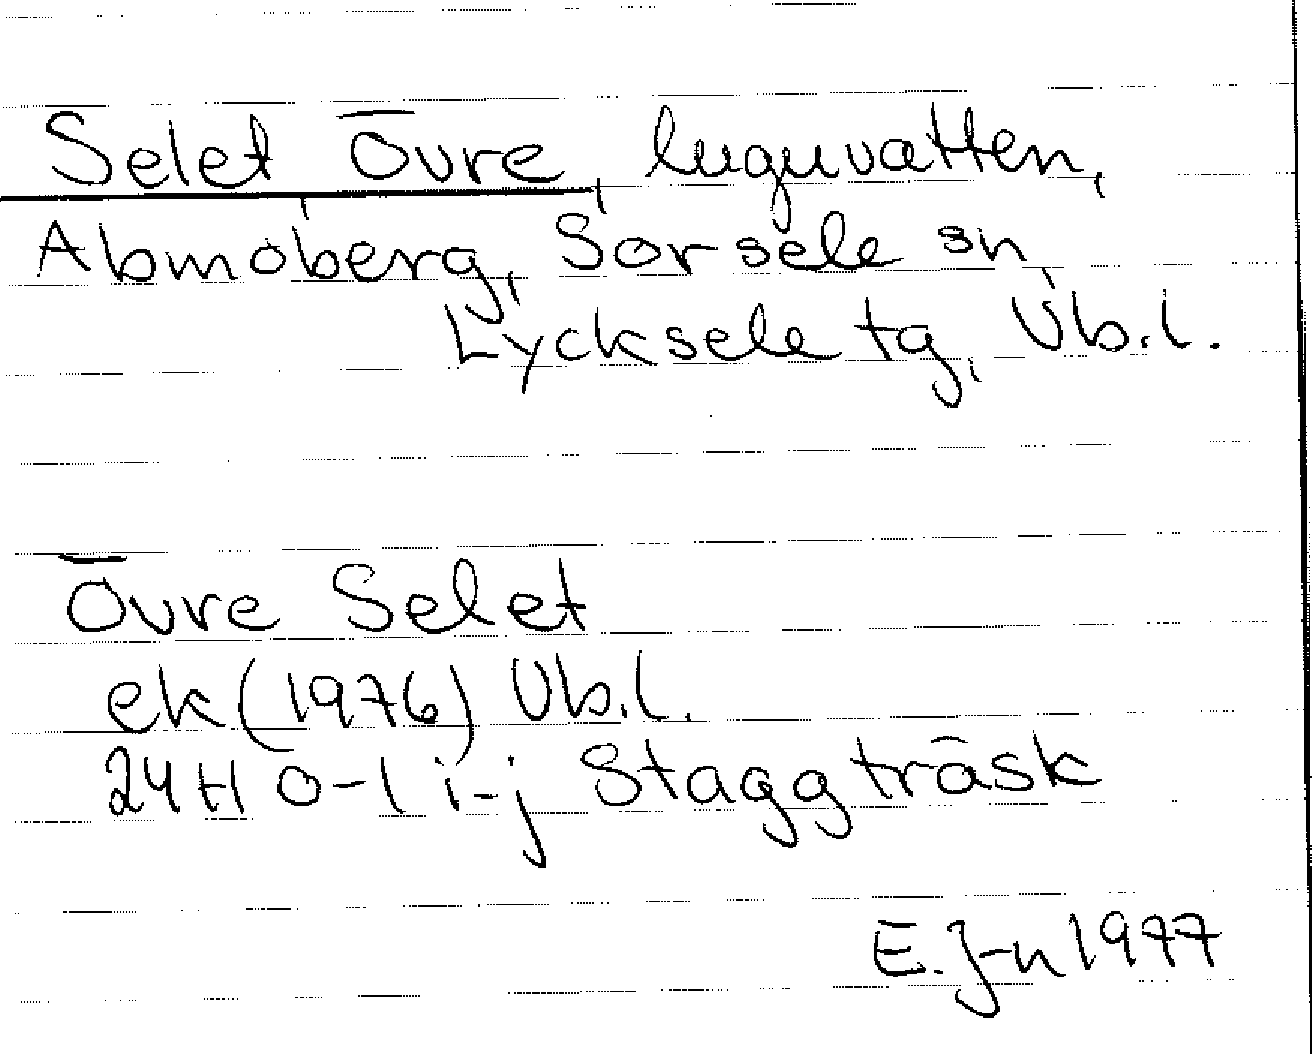 Selet Övre, lugnvatten,
Abmoberg, Sorsele sn,
Lycksele tg, Vb.l.
Övre Selet
ek (1976) Vb.l.
24H 0-1 i-j Staggträsk
E.J-n 1977